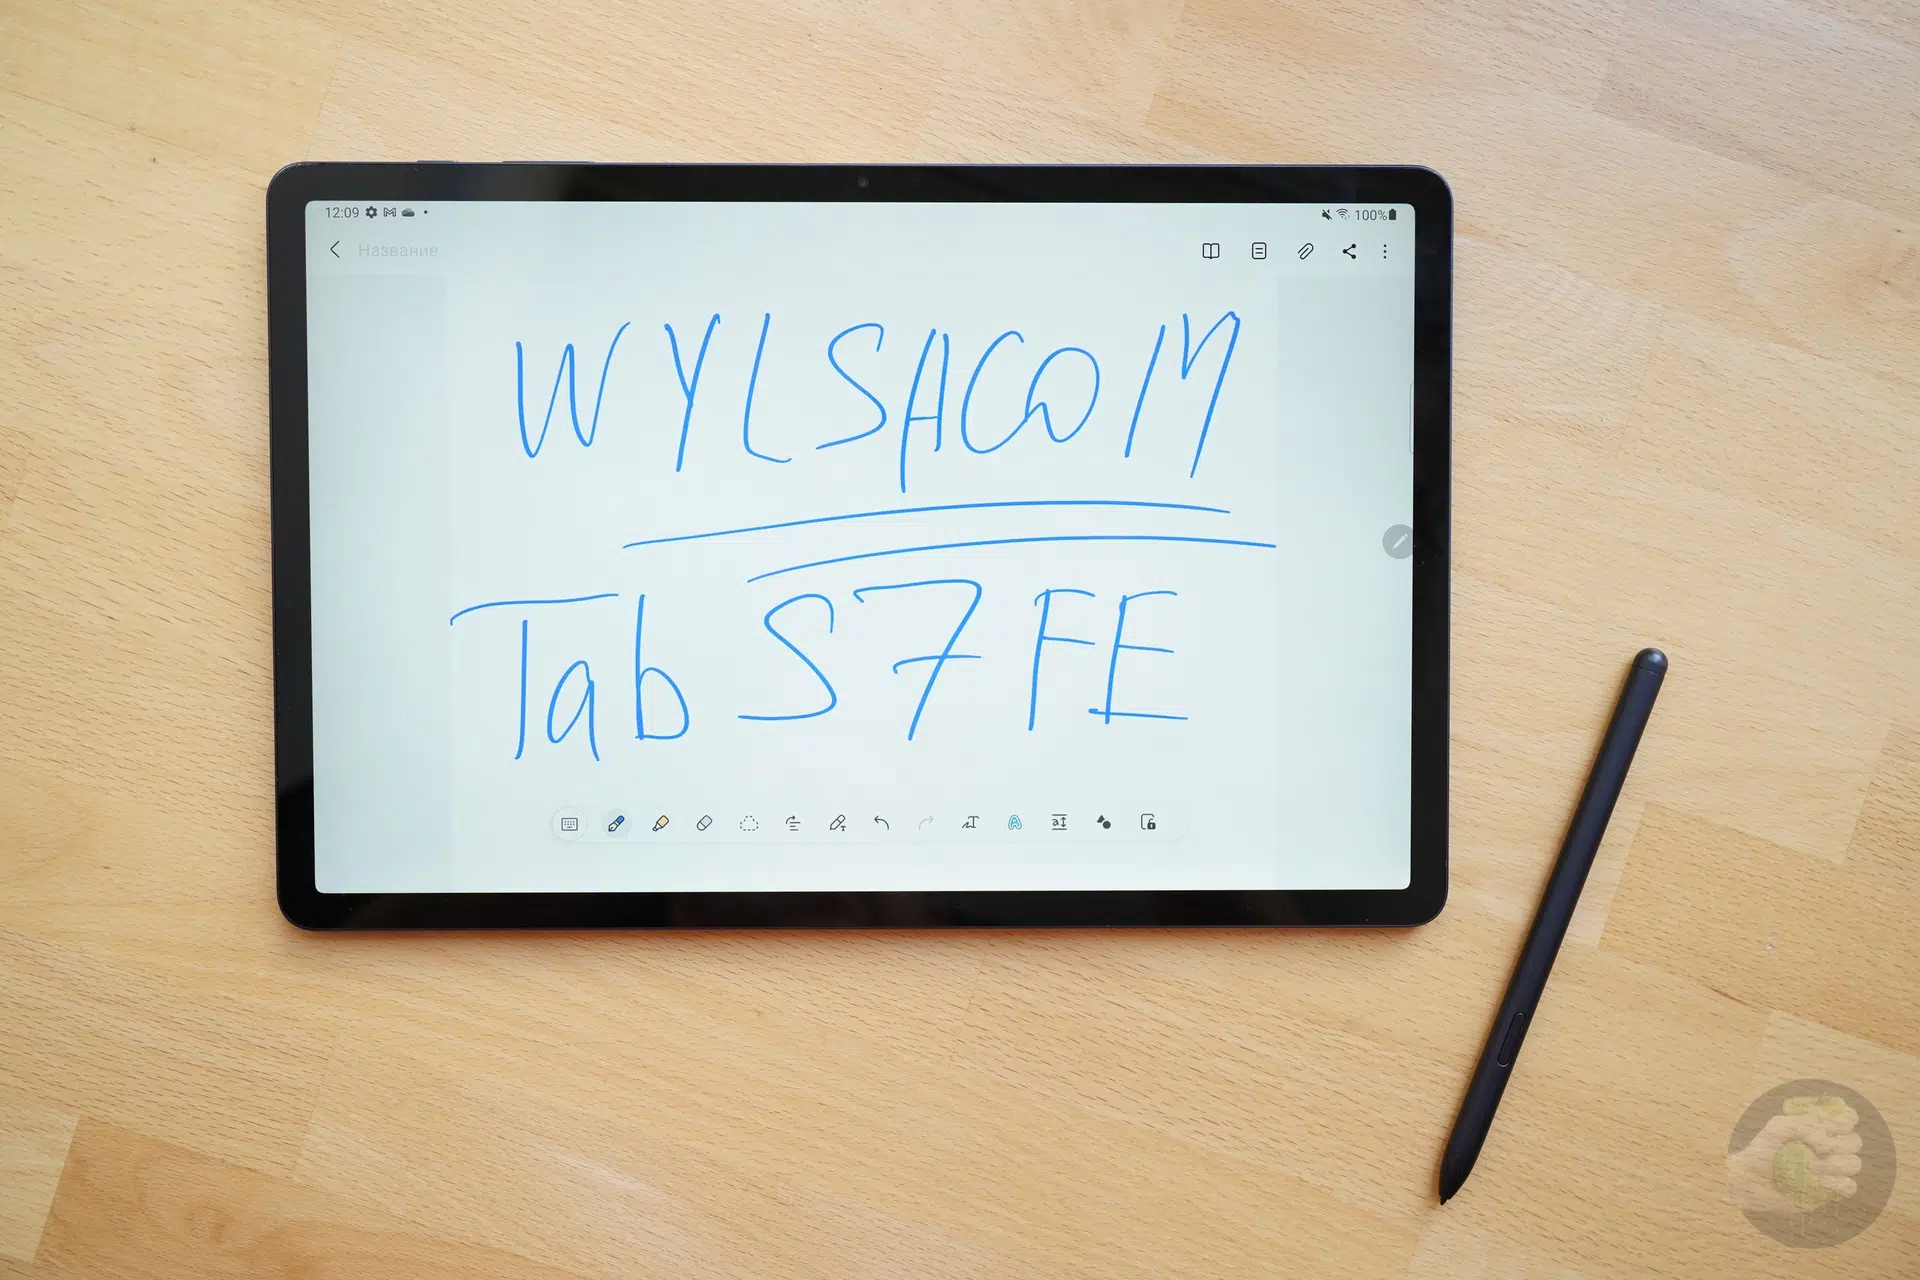 12:09 100%
Название
WYLSACOM
Tab S7 FE